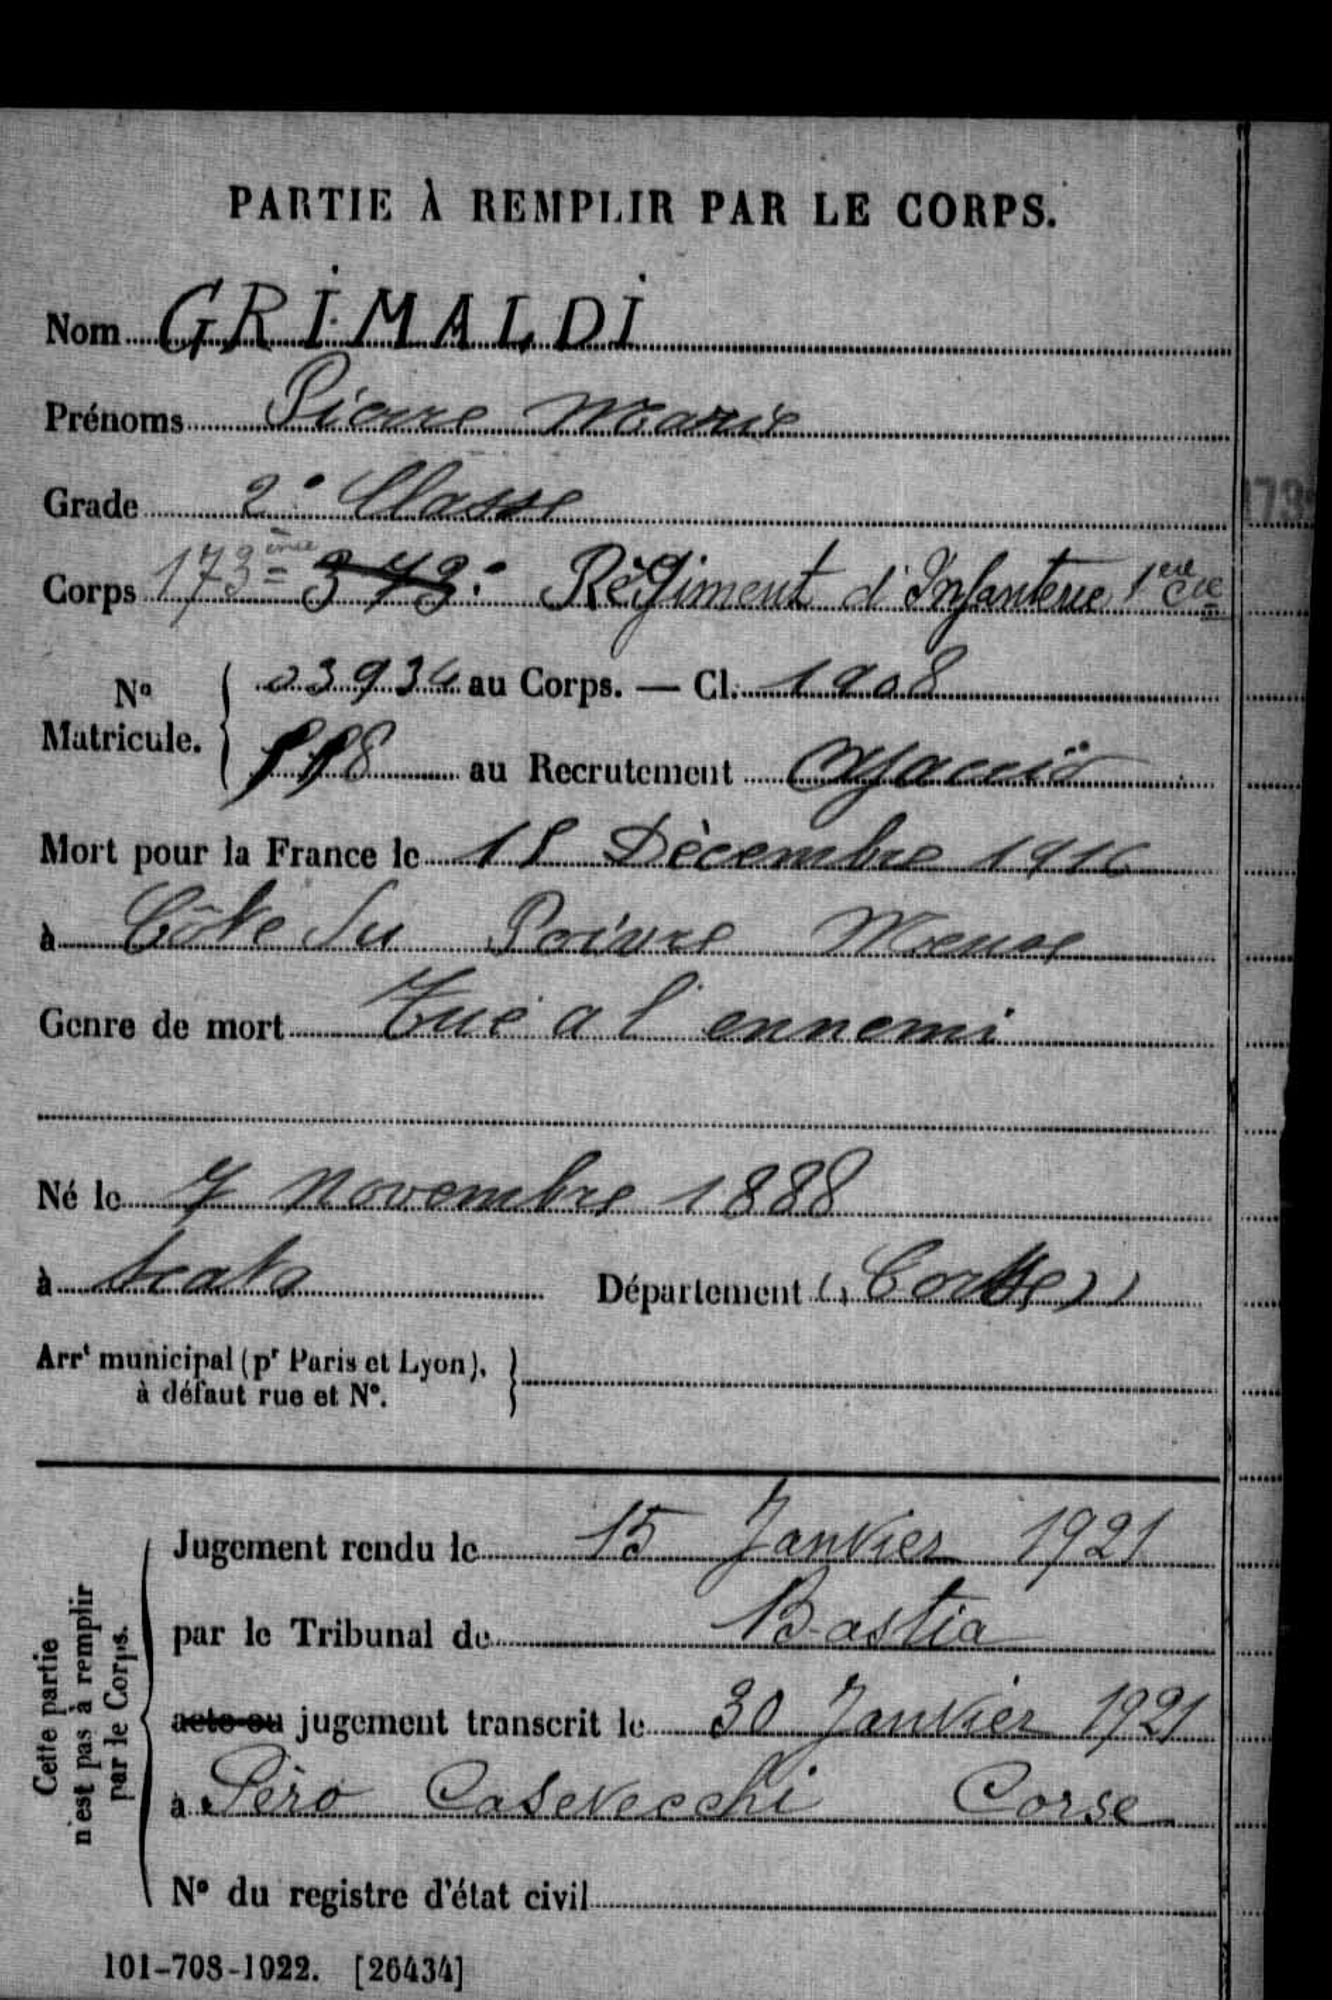 PARTIE À REMPLIR PAR LE CORPS.
Nom GRIMALDI
Prénoms Pierre Marie
Grade 2e Classe
Corps 173ème 373e Régiment d'Infanterie 1ere Cie
No Matricule. 23934 au Corps. — Cl. 1908
au Recrutement Ajaccio
Mort pour la France le Décembre 1916
à Côte du Poivre Meuse
Genre de mort Tué a l'ennemi
Né le 7 Novembre 1888
à Scata Département (Corse)
Arrt municipal (pr Paris et Lyon),
à défaut rue et No.
Cette partie
n'est pas à remplir
par le Corps.
Jugement rendu le 15 Janvier 1921
par le Tribunal de Bastia
acte ou jugement transcrit le 30 Janvier 1921
à Péro Casevecchi Corse
No du registre d'état civil
101-708-1922. [26434]